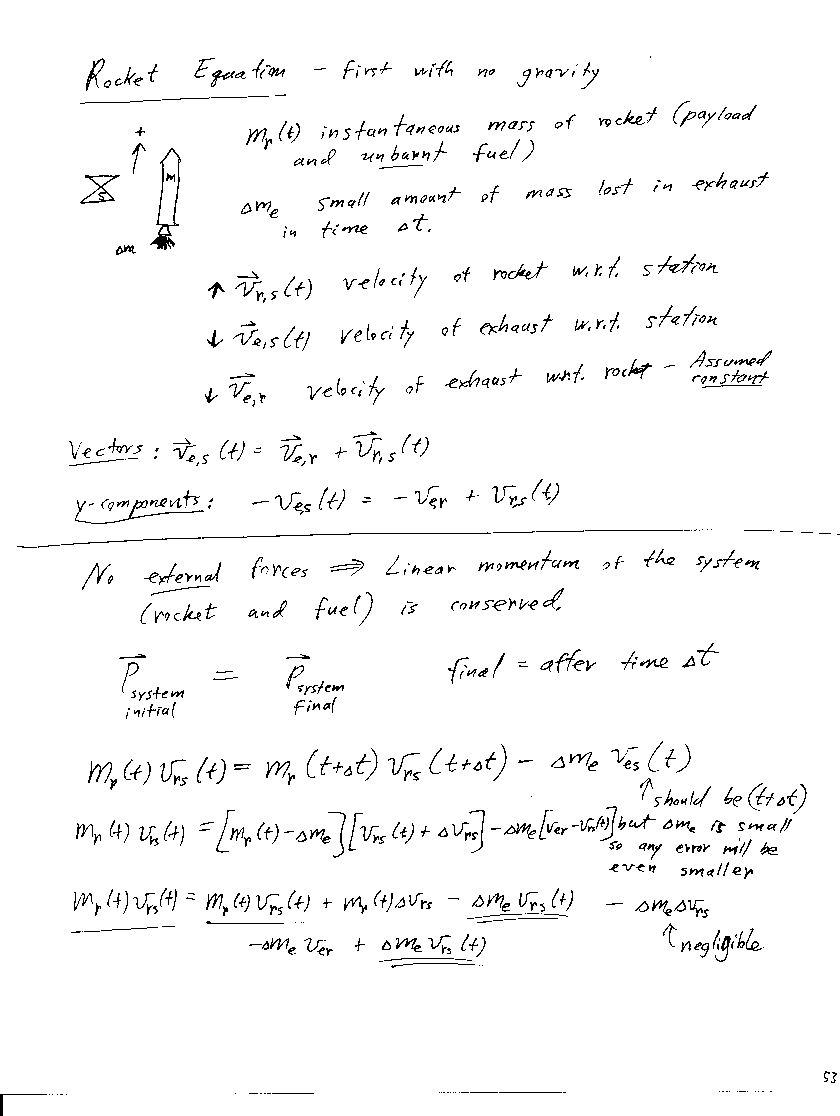 Rocket Equation - first with no gravity
+
m_r(t) instantaneous mass of rocket (payload
and unburnt fuel)
M
S
Δm_e small amount of mass lost in exhaust
in time Δt.
Δm
↑ v⃗_r,s(t) velocity of rocket w.r.t. station
↓ v⃗_e,s(t) velocity of exhaust w.r.t. station
↓ v⃗_e,r velocity of exhaust w.r.t. rocket - Assumed
constant
Vectors: v⃗_e,s(t) = v⃗_e,r + v⃗_r,s(t)
y-components: -v_es(t) = -v_er + v_r,s(t)
No external forces ⇒ Linear momentum of the system
(rocket and fuel) is conserved.
P⃗_system initial = P⃗_system final final = after time Δt
m_r(t) v_rs(t) = m_r(t+Δt) v_rs(t+Δt) - Δm_e v_es(t)
↑ should be (t+Δt)
m_r(t) v_rs(t) = [m_r(t) - Δm_e][v_rs(t) + Δv_rs] - Δm_e[v_er - v_rs(t)] but Δm_e is small
so any error will be
even smaller
m_r(t) v_rs(t) = m_r(t) v_rs(t) + m_r(t) Δv_rs - Δm_e v_rs(t) - Δm_e Δv_rs
-Δm_e v_er + Δm_e v_rs(t) ↑ negligible
53